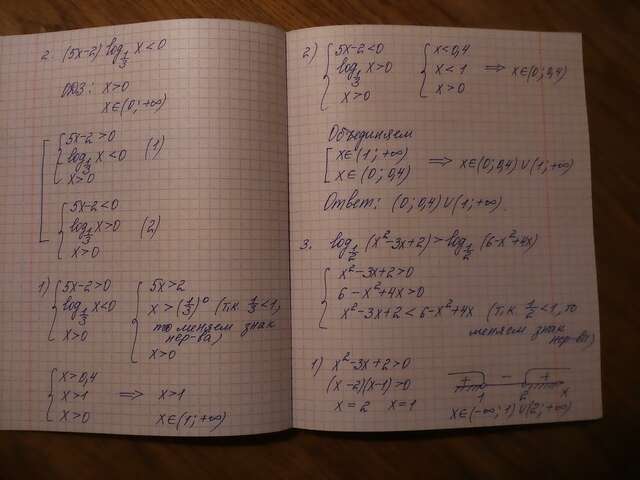 2. (5x-2) log_{1/3} x < 0
ОДЗ: x>0
x∈(0;+∞)
[ { 5x-2>0
log_{1/3} x<0 (1)
x>0
{ 5x-2<0
log_{1/3} x>0 (2)
x>0
1) { 5x-2>0
log_{1/3} x<0
x>0
{ 5x>2
x>(1/3)^0 (т.к. 1/3<1,
то меняем знак
нер-ва)
x>0
{ x>0,4
x>1 ⇒ x>1
x>0 x∈(1;+∞)
2) { 5x-2<0
log_{1/3} x>0
x>0
{ x<0,4
x<1 ⇒ x∈(0;0,4)
x>0
Объединяем
[ x∈(1;+∞)
x∈(0;0,4) ⇒ x∈(0;0,4)∪(1;+∞)
Ответ: (0;0,4)∪(1;+∞)
3. log_{1/2} (x²-3x+2) > log_{1/2} (6-x²+4x)
{ x²-3x+2>0
6-x²+4x>0
x²-3x+2 < 6-x²+4x (т.к. 1/2<1, то
меняем знак
нер-ва)
1) x²-3x+2>0
(x-2)(x-1)>0
x=2 x=1
+ - +
1 2 x
x∈(-∞;1)∪(2;+∞)